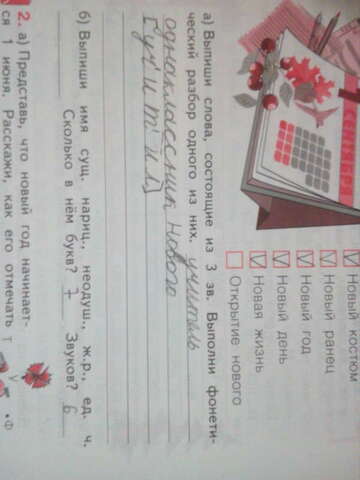 СЕНТЯБРЬ
Новый костюм
Новый ранец
Новый год
Новый день
Новая жизнь
Открытие нового
а) Выпиши слова, состоящие из 3 зв. Выполни фонети-
ческий разбор одного из них. учитель
одноклассник, нового
б) Выпиши имя сущ. нариц., неодуш., ж.р., ед. ч.
Сколько в нём букв? 7 Звуков? 6
2. а) Представь, что новый год начинает-
ся 1 июня. Расскажи, как его отмечать